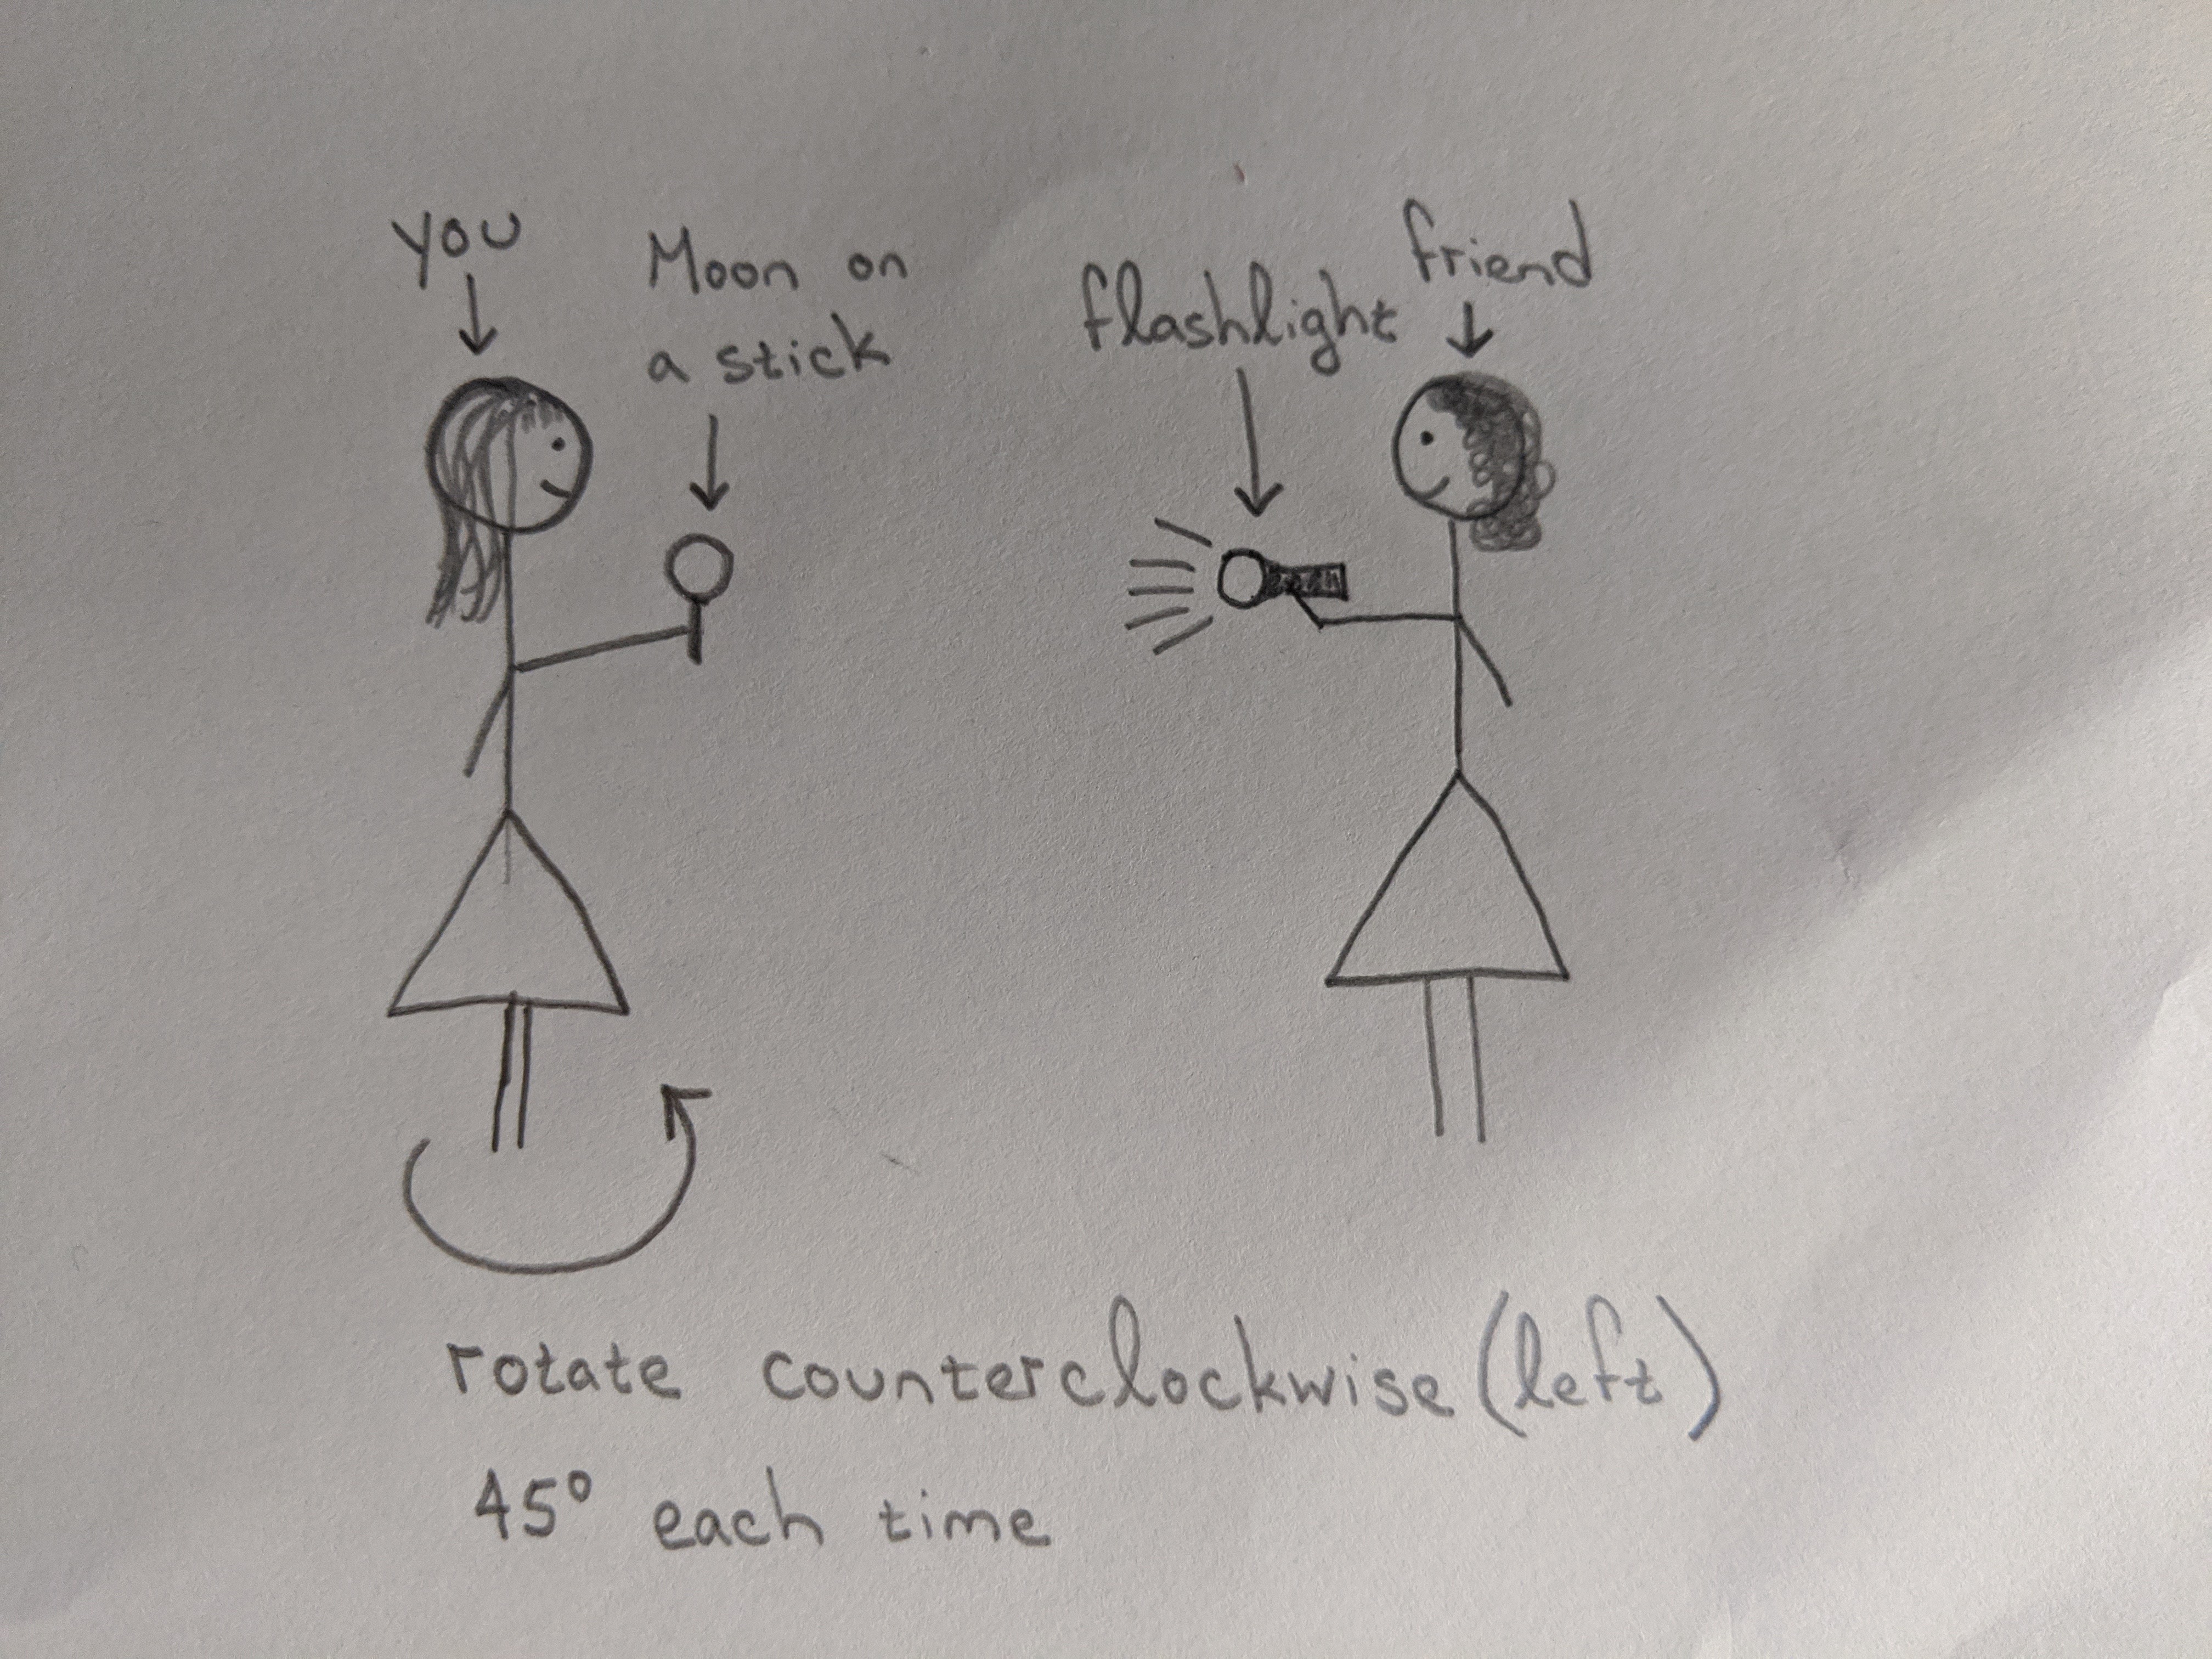 you
Moon on
a stick
flashlight
friend
rotate counterclockwise (left)
45° each time